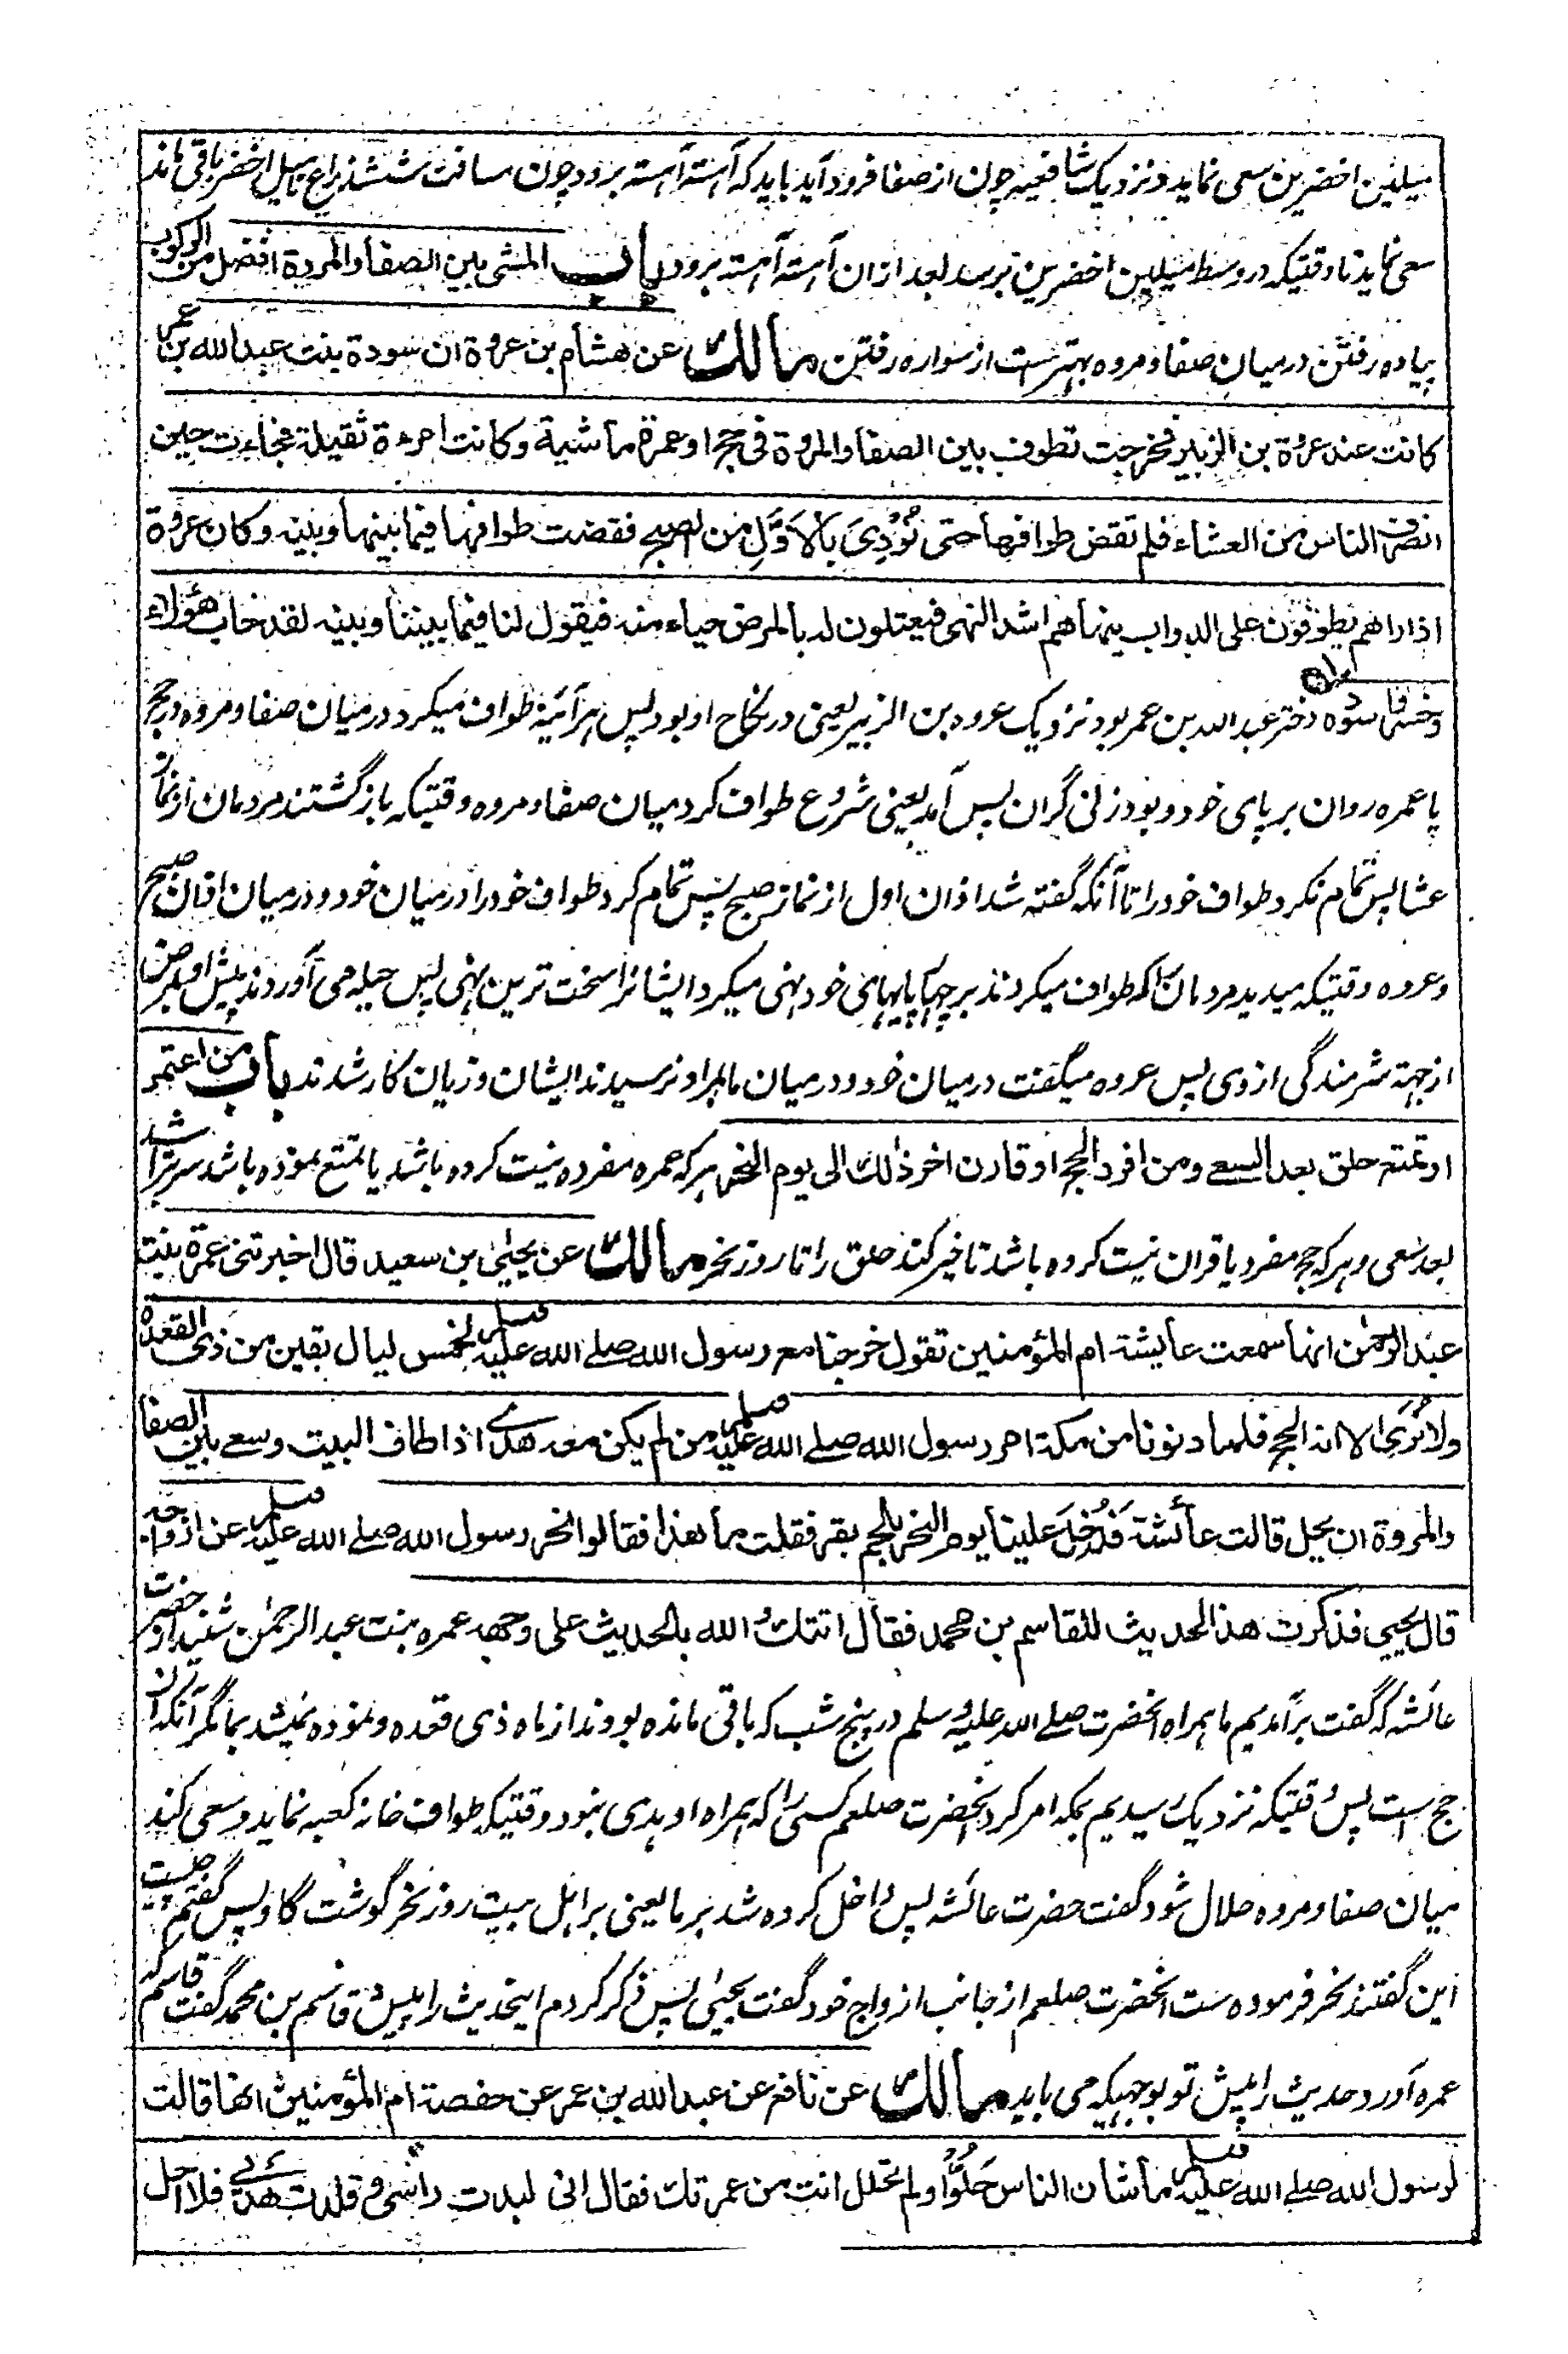 میلین اخضرین سعی نماید و نزدیک شافعیه چون از صفا فرود آید باید که آهسته آهسته برود چون مسافت شش ذراع تا میل اخضر باقی ماند
سعی نماید تا وقتیکه در وسط میلین اخضرین برسد بعد ازان آهسته آهسته برود باب المشی بین الصفا والمروة افضل من الرکوب
پیاده رفتن درمیان صفا و مروه بهترست از سواره رفتن مالک عن هشام بن عروة ان سودة بنت عبدالله بن عمر
کانت عند عروة بن الزبیر فخرجت تطوف بین الصفا والمروة فی حج او عمرة ماشیة وکانت امرءة ثقیلة فجاءت حین
انصرف الناس من العشاء فلم تقض طوافها حتی نُوْدِیَ بالاَوَّلِ من الصبح فقضت طوافها فیما بینها وبینه وکان عروة
اذا راهم یطوفون علی الدواب ینهاهم اشد النهی فیعتلون له بالمرض حیاء منه فیقول لنا فیما بیننا وبینه لقد خاب هؤلاء
وخسروا سوده دختر عبدالله بن عمر بود نزدیک عروه بن الزبیر یعنی در نکاح او بود پس هرآئینه طواف میکرد درمیان صفا و مروه در حج
یا عمره روان بر پای خود و بود زنی گران پس آمد یعنی شروع طواف کرد میان صفا و مروه وقتیکه بازگشتند مردمان از نماز
عشا پس تمام نکرد طواف خود را تا آنکه گفته شد اذان اول از نماز صبح پس تمام کرد طواف خود را درمیان خود و درمیان اذان صبح
و عروه وقتیکه میدید مردمان را که طواف میکردند بر چهارپایهای خود نهی میکرد ایشانرا سخت ترین نهی پس حیله می آوردند پیش او بمرض
از جهة شرمندگی ازوی پس عروه میگفت درمیان خود و درمیان ما بمراد نرسیدند ایشان و زیان کار شدند باب من اعتمر
او تمتع حلق بعد السعے ومن افرد الحج او قارن اخر ذلک الی یوم النحر هر که عمره مفرده نیت کرده باشد یا تمتع نموده باشد سر بتراشد
بعد سعی و هر که حج مفرد یا قران نیت کرده باشد تاخیر کند حلق را تا روز نحر مالک عن یحیی بن سعید قال اخبرتنی عمرة بنت
عبدالرحمن انها سمعت عایشة ام المؤمنین تقول خرجنا مع رسول الله صلے الله علیه وسلم لخمس لیال بقین من ذی القعدة
ولا نُرَی الا انه الحج فلما دنونا من مکة امر رسول الله صلے الله علیه وسلم من لم یکن معه هدی اذا طاف البیت وسعے بین الصفا
والمروة ان یحل قالت عائشة فَدُخِلَ علینا یوم النحر بلحم بقر فقلت ما هذا فقالوا نحر رسول الله صلے الله علیه وسلم عن ازواجه
قال یحیی فذکرت هذا الحدیث للقاسم بن محمد فقال اتتک والله بالحدیث علی وجهه عمره بنت عبدالرحمن شنید از حضرت
عائشه که گفت برآمدیم ما همراه آنحضرت صلے الله علیه وسلم در پنج شب که باقی مانده بودند از ماه ذی قعده و نموده نمیشد بما مگر آنکه آن
حج است پس وقتیکه نزدیک رسیدیم بمکه امر کرد آنحضرت صلعم کسی را که همراه او هدی نبود وقتیکه طواف خانه کعبه نماید و سعی کند
میان صفا و مروه حلال شود گفت حضرت عائشه پس داخل کرده شد بر ما یعنی بر اهل بیت روز نحر گوشت گاو پس گفتم چیست
این گفتند نحر فرموده ست آنحضرت صلعم از جانب ازواج خود گفت یحیی پس ذکر کردم اینحدیث را پیش قاسم بن محمد گفت قاسم که
عمره آورد حدیث را پیش تو بوجهیکه می باید مالک عن نافع عن عبدالله بن عمر عن حفصة ام المؤمنین انها قالت
لرسول الله صلے الله علیه وسلم ما شان الناس حَلُّوْا ولم تحلل انت من عمرتک فقال انی لبدت راسی وقلدت هدیی فلا احل